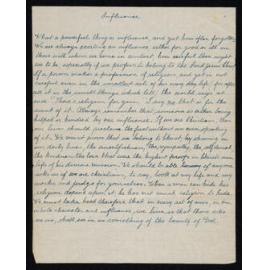 Influence
What a powerful thing is influence, and yet how often forgotten
We are always exerting an influence either for good or ill on
those with whom we come in contact. how careful then ought
we to be, especially if we profess to belong to the Lord Jesus Christ
If a person makes a profession of religion, and yet is not
careful even in the smallest acts of his every day life, for after
all it is the small things which tell, the world says at
once "That's religion for you. I say no that is for the
want of it. Always remember that someone is either being
helped or hindred by our influence. If we are Christians, then
our lives should proclaim the fact without our even speaking
of it. We can at prove that we belong to Christ, by showing in
our daily lives, the unselfishness, the sympathy, the self denial
the kindness the love that were the highest proofs in Christ's own
life of his divine mission. We should be able to any of anyone
who us if we are christians, to say, look at my life and my
works and judge for yourselves. When a man can hide his
religion depend upon it, he has not much religion to hide.
We must take heed therefore that in every act of ours, in our
whole character and influence, we live so that those who
see us, shall see in us something of the beauty of God.